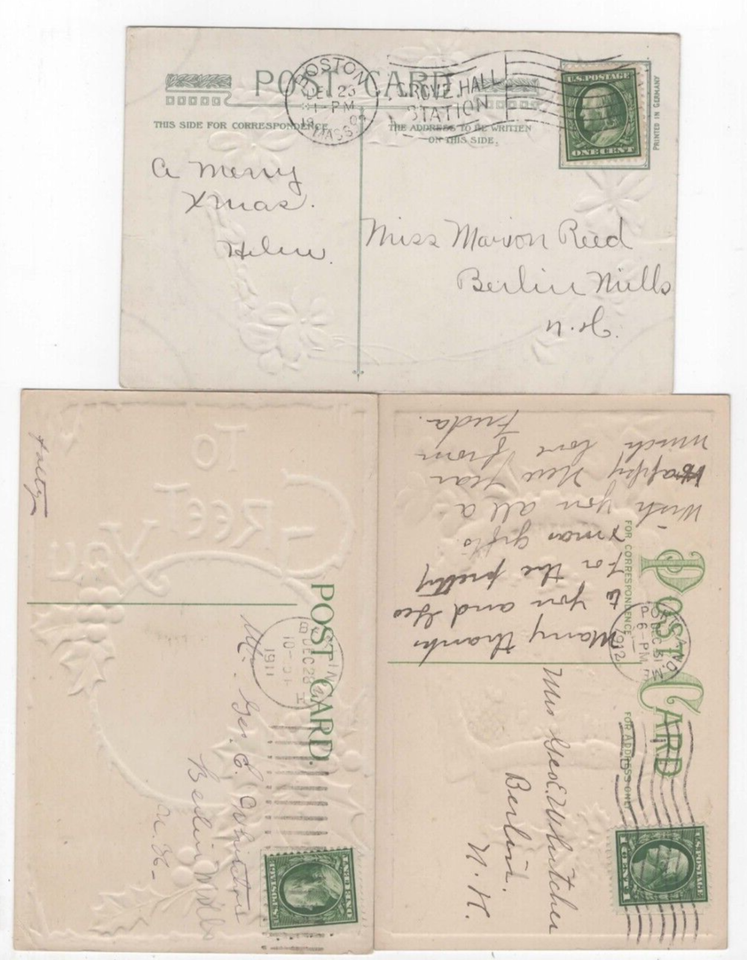 POST CARD
BOSTON
DEC 23
1-PM
MASS.
GROVE HALL
STATION
U.S. POSTAGE
ONE CENT
THIS SIDE FOR CORRESPONDENCE
THE ADDRESS TO BE WRITTEN
ON THIS SIDE.
PRINTED IN GERMANY
A Merry
Xmas.
Helen.
Miss Marion Reed
Berlin Mills
N.H.
TO
GREET
YOU
POST CARD
DEC 26
1911
Mr. Geo. E.
Berlin Mills
N. H.
U.S. POSTAGE
POST CARD
FOR CORRESPONDENCE
FOR ADDRESS ONLY
DEC 31
6-PM
1912
Many thanks
to you and Geo
for the pretty
xmas gifts
Wish you all a
Happy New Year
much love from
Freda.
Mrs Geo E Whitcher
Berlin.
N. H.
U.S. POSTAGE
1 CENT 1